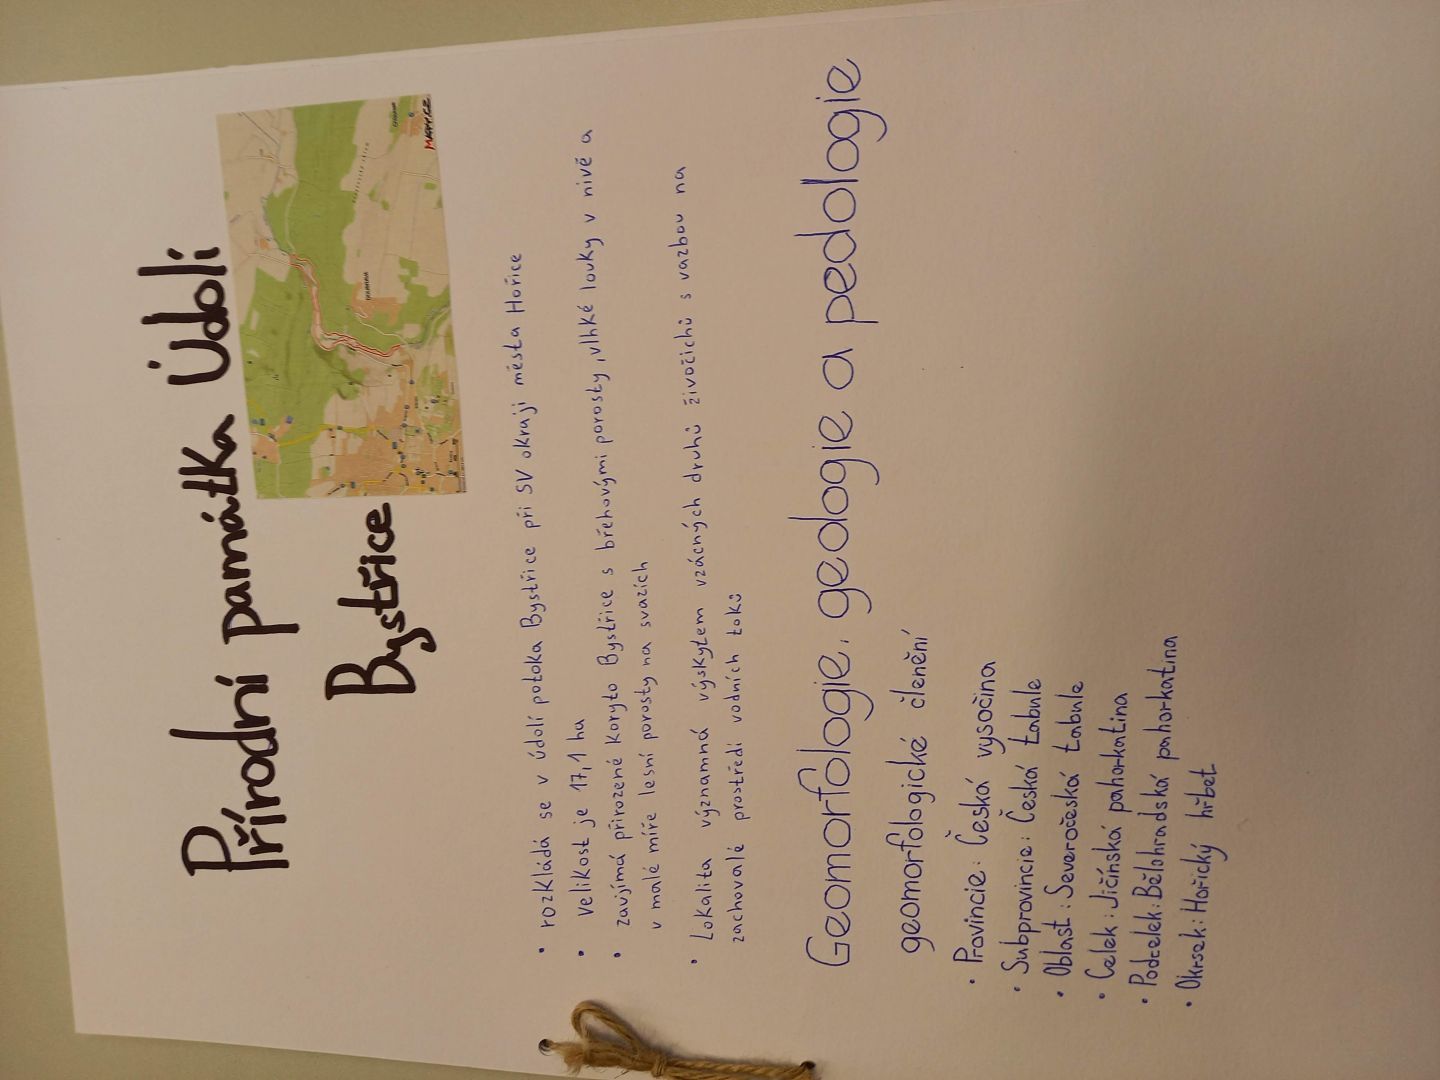 Přírodní památka Údolí
Bystřice
MAPY.CZ
• rozkládá se v údolí potoka Bystřice při SV okraji města Hořice
• Velikost je 17,1 ha
• zaujímá přirozené koryto Bystřice s břehovými porosty, vlhké louky v nivě a
v malé míře lesní porosty na svazích
• Lokalita významná výskytem vzácných druhů živočichů s vazbou na
zachovalé prostředí vodních toků
Geomorfologie, geologie a pedologie
geomorfologické členění
• Provincie: Česká vysočina
• Subprovincie: Česká tabule
• Oblast: Severočeská tabule
• Celek: Jičínská pahorkatina
• Podcelek: Bělohradská pahorkatina
• Okrsek: Hořický hřbet